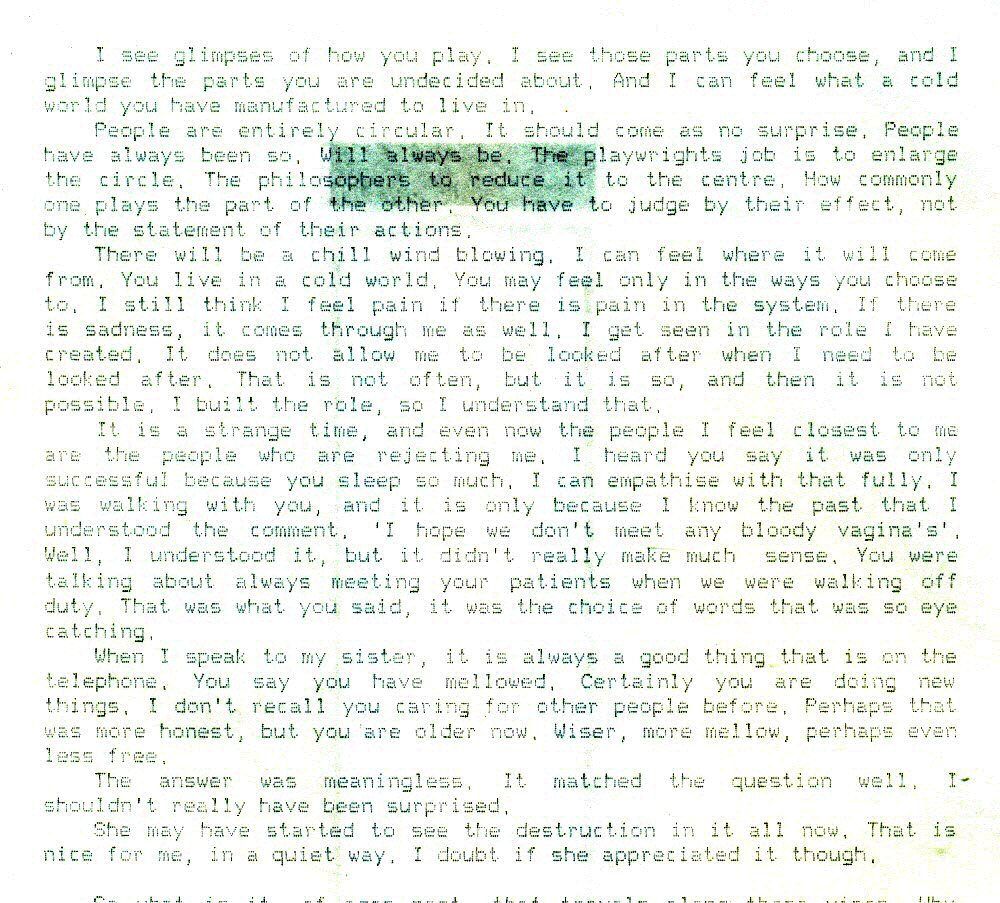 I see glimpses of how you play. I see those parts you choose, and I
glimpse the parts you are undecided about. And I can feel what a cold
world you have manufactured to live in.
People are entirely circular. It should come as no surprise. People
have always been so. Will always be. The playwrights job is to enlarge
the circle. The philosophers to reduce it to the centre. How commonly
one plays the part of the other. You have to judge by their effect, not
by the statement of their actions.
There will be a chill wind blowing. I can feel where it will come
from. You live in a cold world. You may feel only in the ways you choose
to. I still think I feel pain if there is pain in the system. If there
is sadness, it comes through me as well. I get seen in the role I have
created. It does not allow me to be looked after when I need to be
looked after. That is not often, but it is so, and then it is not
possible. I built the role, so I understand that.
It is a strange time, and even now the people I feel closest to me
are the people who are rejecting me. I heard you say it was only
successful because you sleep so much. I can empathise with that fully. I
was walking with you, and it is only because I know the past that I
understood the comment. 'I hope we don't meet any bloody vagina's'.
Well, I understood it, but it didn't really make much sense. You were
talking about always meeting your patients when we were walking off
duty. That was what you said, it was the choice of words that was so eye
catching.
When I speak to my sister, it is always a good thing that is on the
telephone. You say you have mellowed. Certainly you are doing new
things. I don't recall you caring for other people before. Perhaps that
was more honest, but you are older now. Wiser, more mellow, perhaps even
less free.
The answer was meaningless. It matched the question well. I
shouldn't really have been surprised.
She may have started to see the destruction in it all now. That is
nice for me, in a quiet way. I doubt if she appreciated it though.